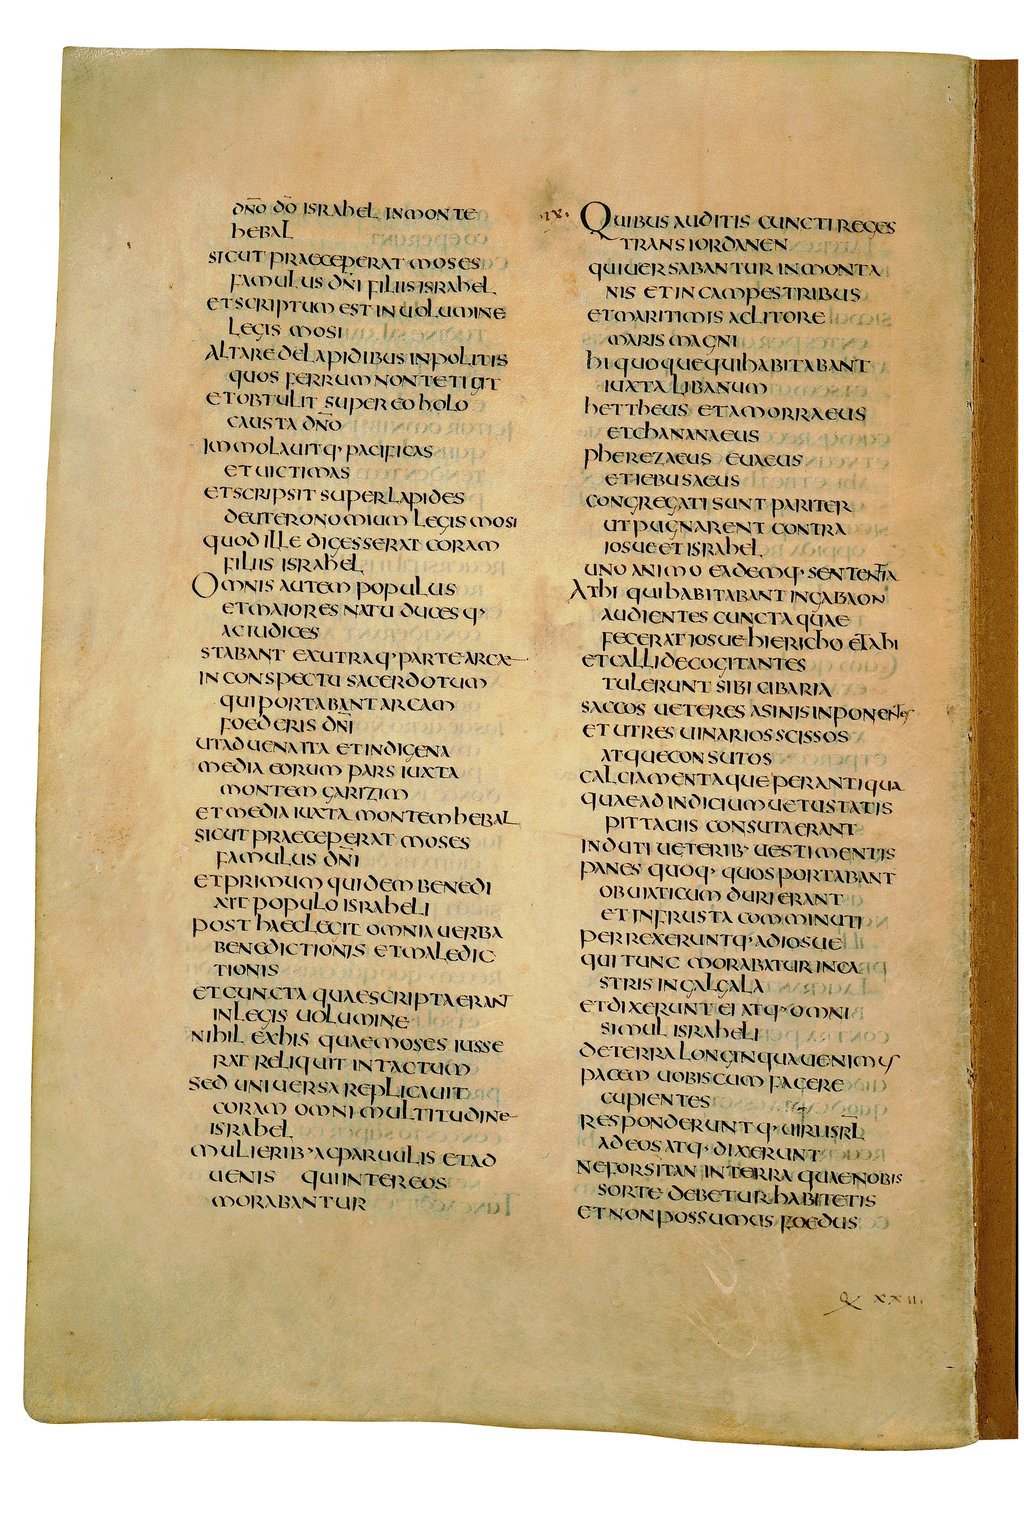 dñо dō israhel in monte
hebal
sicut praeceperat moses
famulus dñi filiis israhel
et scriptum est in uolumine
legis mosi
altare de lapidibus inpolitis
quos ferrum non tetigit
et obtulit super eo holo
causta dño
immolauitq· pacificas
et uictimas
et scripsit super lapides
deuteronomium legis mosi
quod ille digesserat coram
filiis israhel
Omnis autem populus
et maiores natu duces q·
ac iudices
stabant ex utraq· parte arcae
in conspectu sacerdotum
qui portabant arcam
foederis dñi
ut aduena ita et indigena
media eorum pars iuxta
montem garizim
et media iuxta montem hebal
sicut praeceperat moses
famulus dñi
et primum quidem benedi
xit populo israheli
post haec legit omnia uerba
benedictionis et maledic
tionis
et cuncta quae scripta erant
in legis uolumine
nihil ex his quae moses iusse
rat reliquit intactum
sed uniuersa replicauit
coram omni multitudine
israhel
mulierib· ac paruulis et ad
uenis qui inter eos
morabantur
·ix· Quibus auditis cuncti reges
trans iordanen
qui uersabantur in monta
nis et in campestribus
et maritimis ac litore
maris magni
hi quoque qui habitabant
iuxta libanum
hettheus et amorraeus
et chananaeus
pherezaeus euaeus
et iebusaeus
congregati sunt pariter
ut pugnarent contra
iosue et israhel
uno animo eademq· sententia
At hi qui habitabant in gabaon
audientes cuncta quae
fecerat iosue hiericho et ahi
et callide cogitantes
tulerunt sibi cibaria
saccos ueteres asinis inponentes
et utres uinarios scissos
atque consutos
calciamentaque perantiqua
quae ad indicium uetustatis
pittaciis consuta erant
induti ueterib· uestimentis
panes quoq· quos portabant
ob uiaticum duri erant
et in frusta comminuti
perrexeruntq· ad iosue
qui tunc morabatur in ca
stris in galgala
et dixerunt ei atq· omni
simul israheli
de terra longinqua uenimus
pacem uobiscum facere
cupientes
responderuntq· uiri isrl̄
ad eos atq· dixerunt
ne forsitan in terra quae nobis
sorte debetur habitetis
et non possumus foedus
q xxii